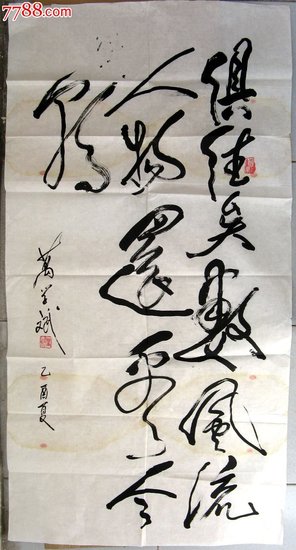 7788.com
俱往矣數風流
人物還看今
朝
萬 斌
乙酉夏